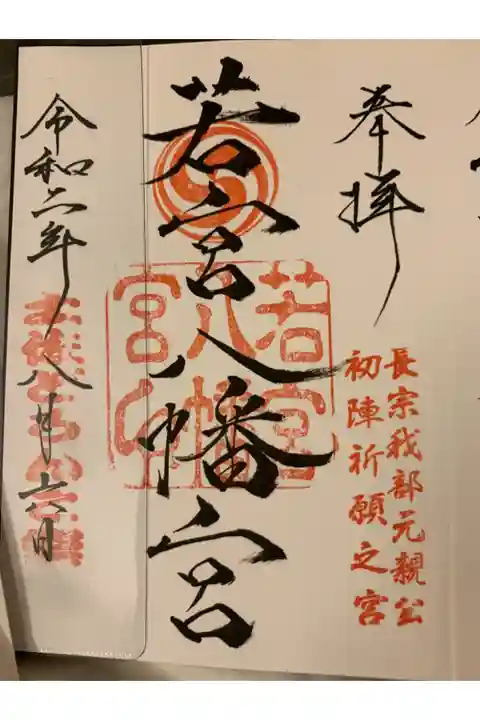 奉拝
長宗我部元親公
初陣祈願之宮
若宮八幡宮
若宮八幡宮印
令和二年八月六日